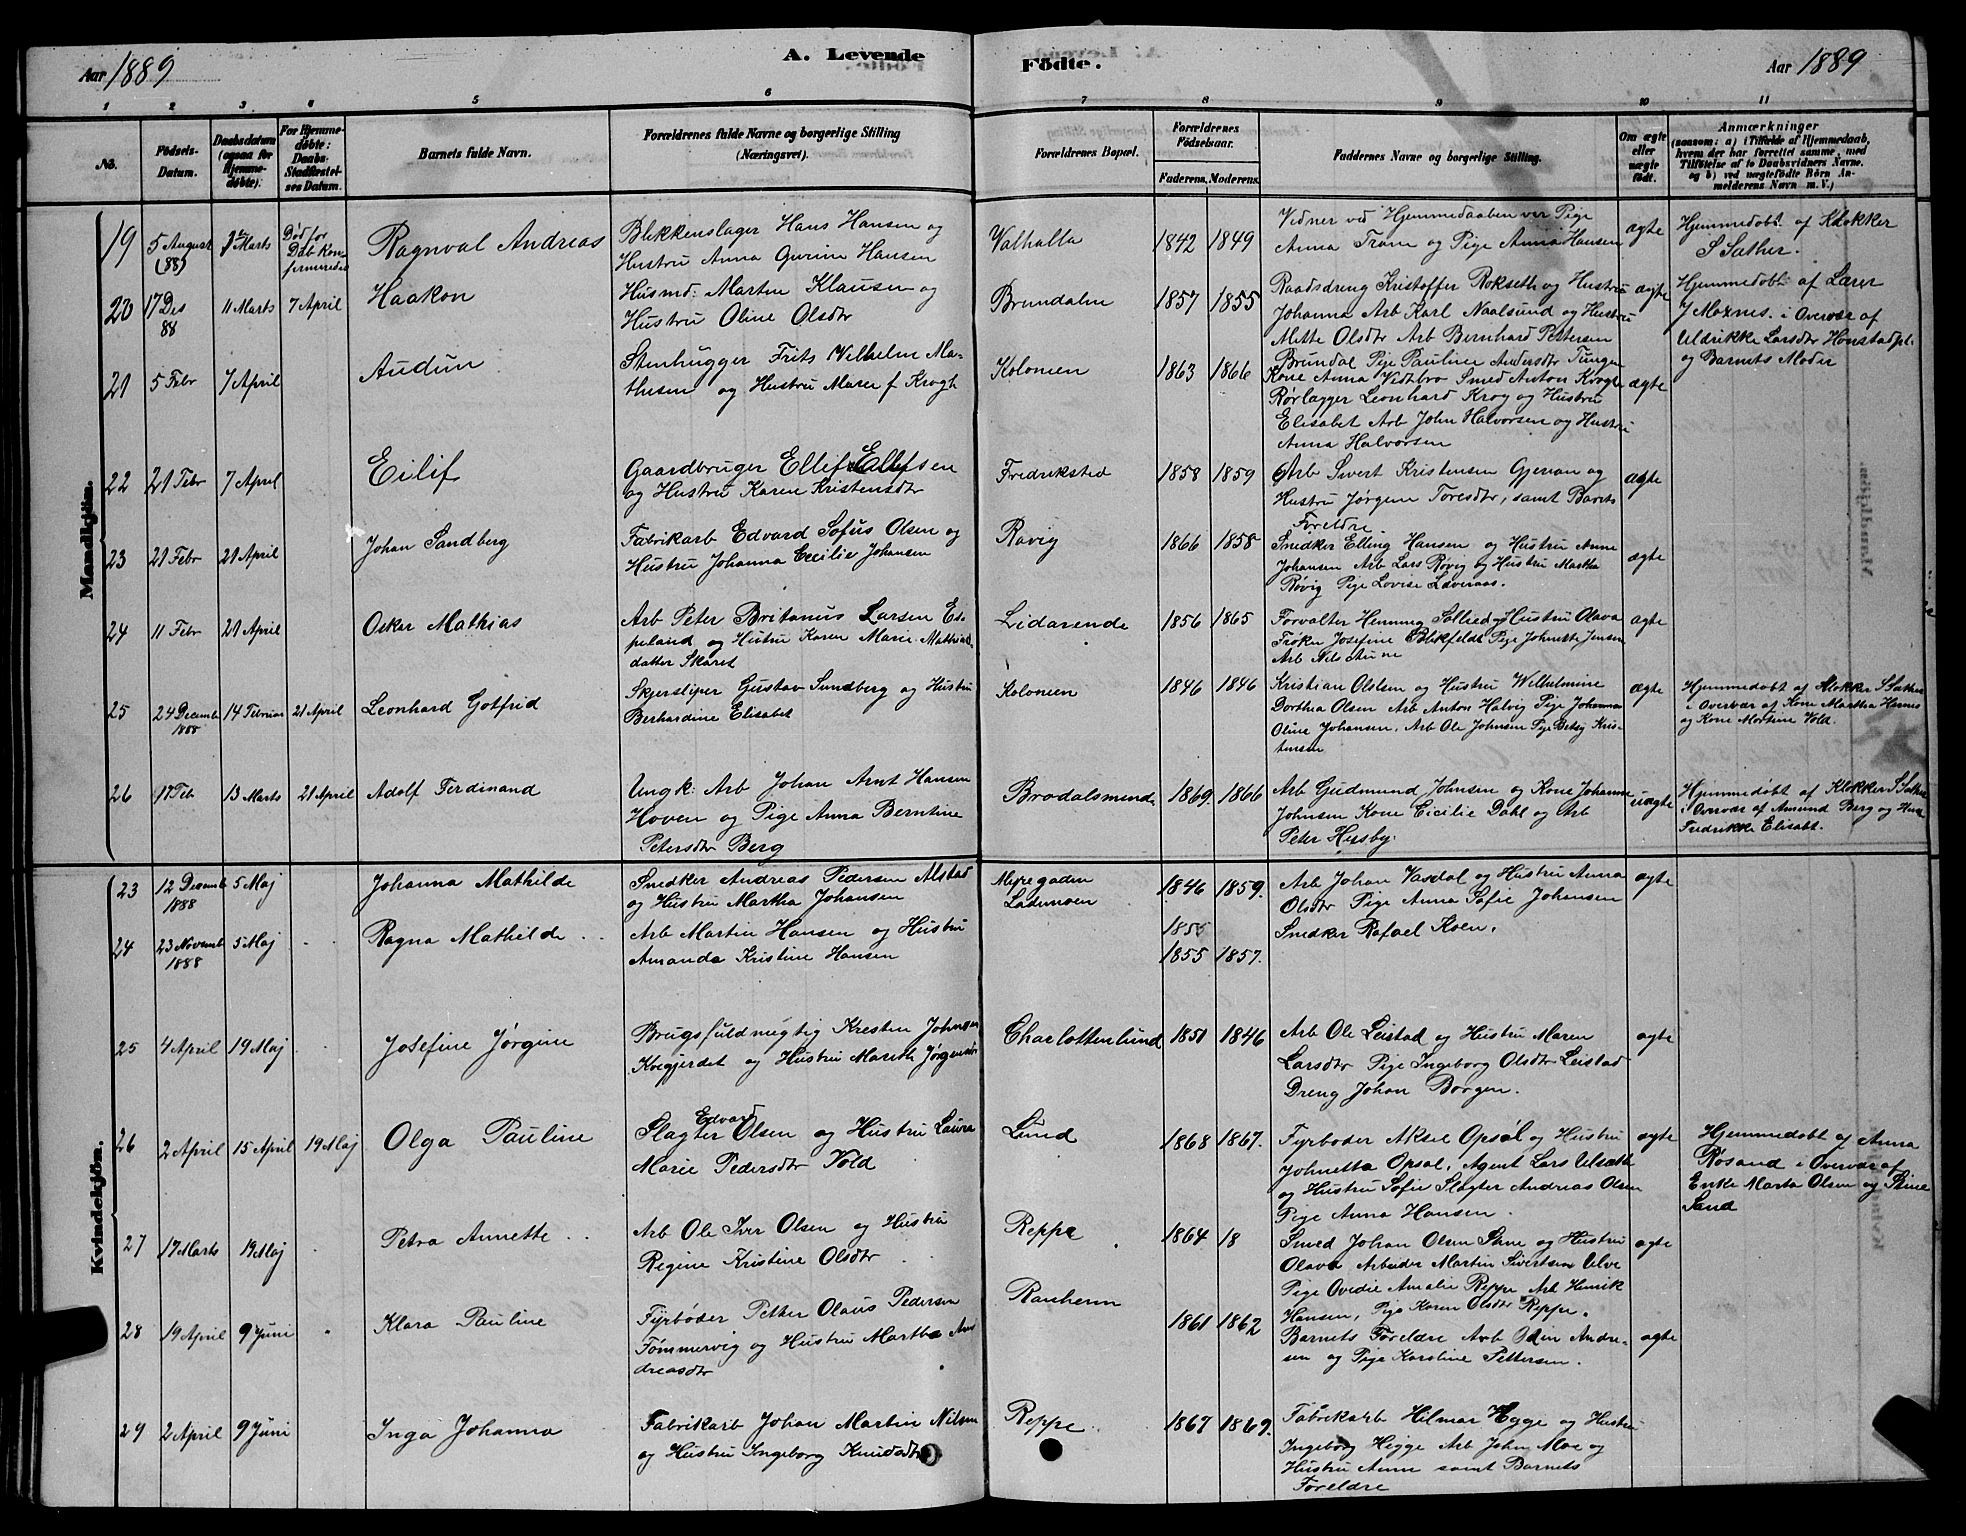 Aar 1889
A. Levende
Fødte.
Aar 1889
1 2 3 4 5 6 7 8 9 10 11
No.
Fødsels-
Datum.
Daabsdatum
(ogsaa for
Hjemme-
døbte).
For Hjemme-
døbte:
Daabs-
Stadfæstel-
ses Datum.
Barnets fulde Navn.
Forældrenes fulde Navne og borgerlige Stilling
(Næringsvei).
Forældrenes Bopæl.
Forældrenes
Fødselsaar.
Faderens. Moderens.
Faddernes Navne og borgerlige Stilling.
Om ægte
eller
uægte
født.
Anmærkninger
(saasom: a) i Tilfælde af Hjemmedaab,
hvem der har forrettet samme, med
Tilføielse af to Daabsvidners Navne.
og b) ved uægtefødte Børn An-
melderens Navn m. V.)
Mandkjön.
19
5 August
(88)
Marts
Død for
Dåb Kon-
firmeredes
Ragnval Andreas
Blikkenslager Hans Hansen og
Hustru Anna Gurine Hansen
Valhalla
1842 1849
Vidner ved Hjemmedaaben ver Pige
Anna Trane og Pige Anna Hansen
ægte
Hjemmedøbt af Klokker
S Sather.
20
17 Des
88
11 Marts
7 April
Haakon
Husmd: Marten Klausen og
Hustru Oline Olsdtr
Brundalen
1857 1855
Raadsdreng Kristoffer Rokseth og Hustru
Johanna Arb Karl Naalsund og Hustru
Mette Olsdtr Arb Bernhard Pettersen
Brundal Pige Pauline Andersdtr Tungen
ægte
Hjemmedøbt af Lærer
J Moxnes. i Overvær af
Uldrikke Larsdtr Honstadpl.
og Barnets Moder
21
5 Febr
7 April
Audun
Stenhugger Frits Vilhelm Ma-
thesen og Hustru Maren f Krogh
Kolonien
1863 1866
Kone Anna Vedtbro Smed Anton Krogh
Rørlægger Leonhard Krog og Hustru
Elisabet Arb John Halvorsen og Hustru
Anna Halvorsen
ægte
22
21 Febr
7 April
Eilif
Gaardbruger Ellif Ellifsen
og Hustru Karen Kristensdtr
Fredriksted
1858 1859
Arb Sivert Kristensen Gjenan og
Hustru Jørgine Toresdtr, samt Barnets
Foreldre.
ægte
23
21 Febr
21 April
Johan Sandberg
Fabrikarb Edvard Sofus Olsen og
Hustru Johanna Cecilie Johansen
Ravig
1866 1858
Snedker Elling Hansen og Hustru Anne
Johansen Arb Lars Røvig og Hustru Martha
Røvig Pige Lovise Laveraas.
ægte
24
11 Febr
21 April
Oskar Mathias
Arb Peter Britanus Larsen Es-
peland og Hustru Karen Marie Mathias-
datter Skaret
Lidarende
1856 1865
Forvalter Hemming Sollied og Hustru Olava
Frøken Josefine Blikfeldt Pige Johnette Jensen
Arb Nils Aune
ægte
25
24 Decemb
1888
14 Februar
21 April
Leonhard Gotfrid
Skjersliper Gustav Sundberg og Hustru
Berhardine Elisabet
Kolonien
1846 1846
Kristian Olslen og Hustru Wilhelmine
Dorthea Olsen Arb Anton Halvig Pige Johanna
Oline Johansen. Arb Ole Johnsen Pige Betsy Kris-
tensen
ægte
Hjemmedøbt af Klokker S Sather
i Overvær af Kone Martha Hernes
og Kone Mortine Vold.
26
17 Feb
13 Marts
21 April
Adolf Ferdinand
Ungk: Arb Johan Arnt Hansen
Hoven og Pige Anna Berntine
Petersdtr Berg
Brodalsminde
1869. 1866
Arb Gudmund Johnsen og Kone Johanne
Johnsen Kone Cicilie Dahl og Arb
Peter Husby.
uægte
Hjemmedøbt af Klokker S Sather
i Overvær af Amund Berg og Hust
Fredrikke Elisabt.
Kvindekjön.
23
12 Desemb
1888
5 Maj
Johanna Mathilde
Snedker Andreas Pedersen Alstad
og Hustru Martha Johansen
Mejregaden
Lademoen
1846 1859.
Arb Johan Vasdal og Hustru Anna
Olsdtr Pige Anna Sofie Johansen
Snedker Rafael Koen.
ægte
24
23 Novemb
1888
5 Maj
Ragna Mathilde
Arb Martin Hansen og Hustru
Amanda Kristine Hansen
1855
1855 1857.
25
4 April
19 Maj
Josefine Jørgine
Brugsfuldmegtig Kresten Johnsen
Kvegjerdet og Hustru Mareth Jørgensdtr
Charlottenlund
1851 1846
Arb Ole Leistad og Hustru Maren
Larsdtr Pige Ingeborg Olsdtr Leistad
Dreng Johan Borgen.
ægte
26
2 April
15 April
19 Maj
Olga Pauline
Edvard
Slagter Olsen og Hustru Laura
Marie Pedersdtr Vold
Lund
1868 1867.
Fyrbøder Aksel Opsal og Hustru
Johnetta Opsal, Agent Lars Ulsæth
og Hustru Sofie Slagter Andreas Olsen
Pige Anna Hansen.
ægte
Hjemmedøbt af Anna
Røsand i Overvær af
Enke Marta Olsen og Stine
Sand
27
17 Marts
19 Maj
Petra Annette
Arb Ole Iver Olsen og Hustru
Regine Kristine Olsdtr
Reppe
1864 18
Smed Johan Olsen Stene og Hustru
Olava Arbeider Martin Sivertsen Ulve
Pige Ovedie Amalie Reppe Arb Henrik
Hansen, Pige Karen Olsdtr Reppe.
ægte
28
19 April
9 Juni
Klara Pauline
Fyrbøder Petter Olaus Pedersen
Tømmervig og Hustru Martha An-
dreasdtr
Ranheim
1861 1862
Barnets Foreldre Arb Odin Andre-
sen og Pige Karoline Pettersen.
ægte
29
2 April
9 Juni
Inga Johanna
Fabrikarb Johan Martin Nilsen
og Hustru Ingeborg Knudsdtr
Reppe.
1867 1869.
Fabrikarb Hilmar Hegge og Hustru
Ingeborg Higge Arb John Moe og
Hustru Anne samt Barnets
Foreldre